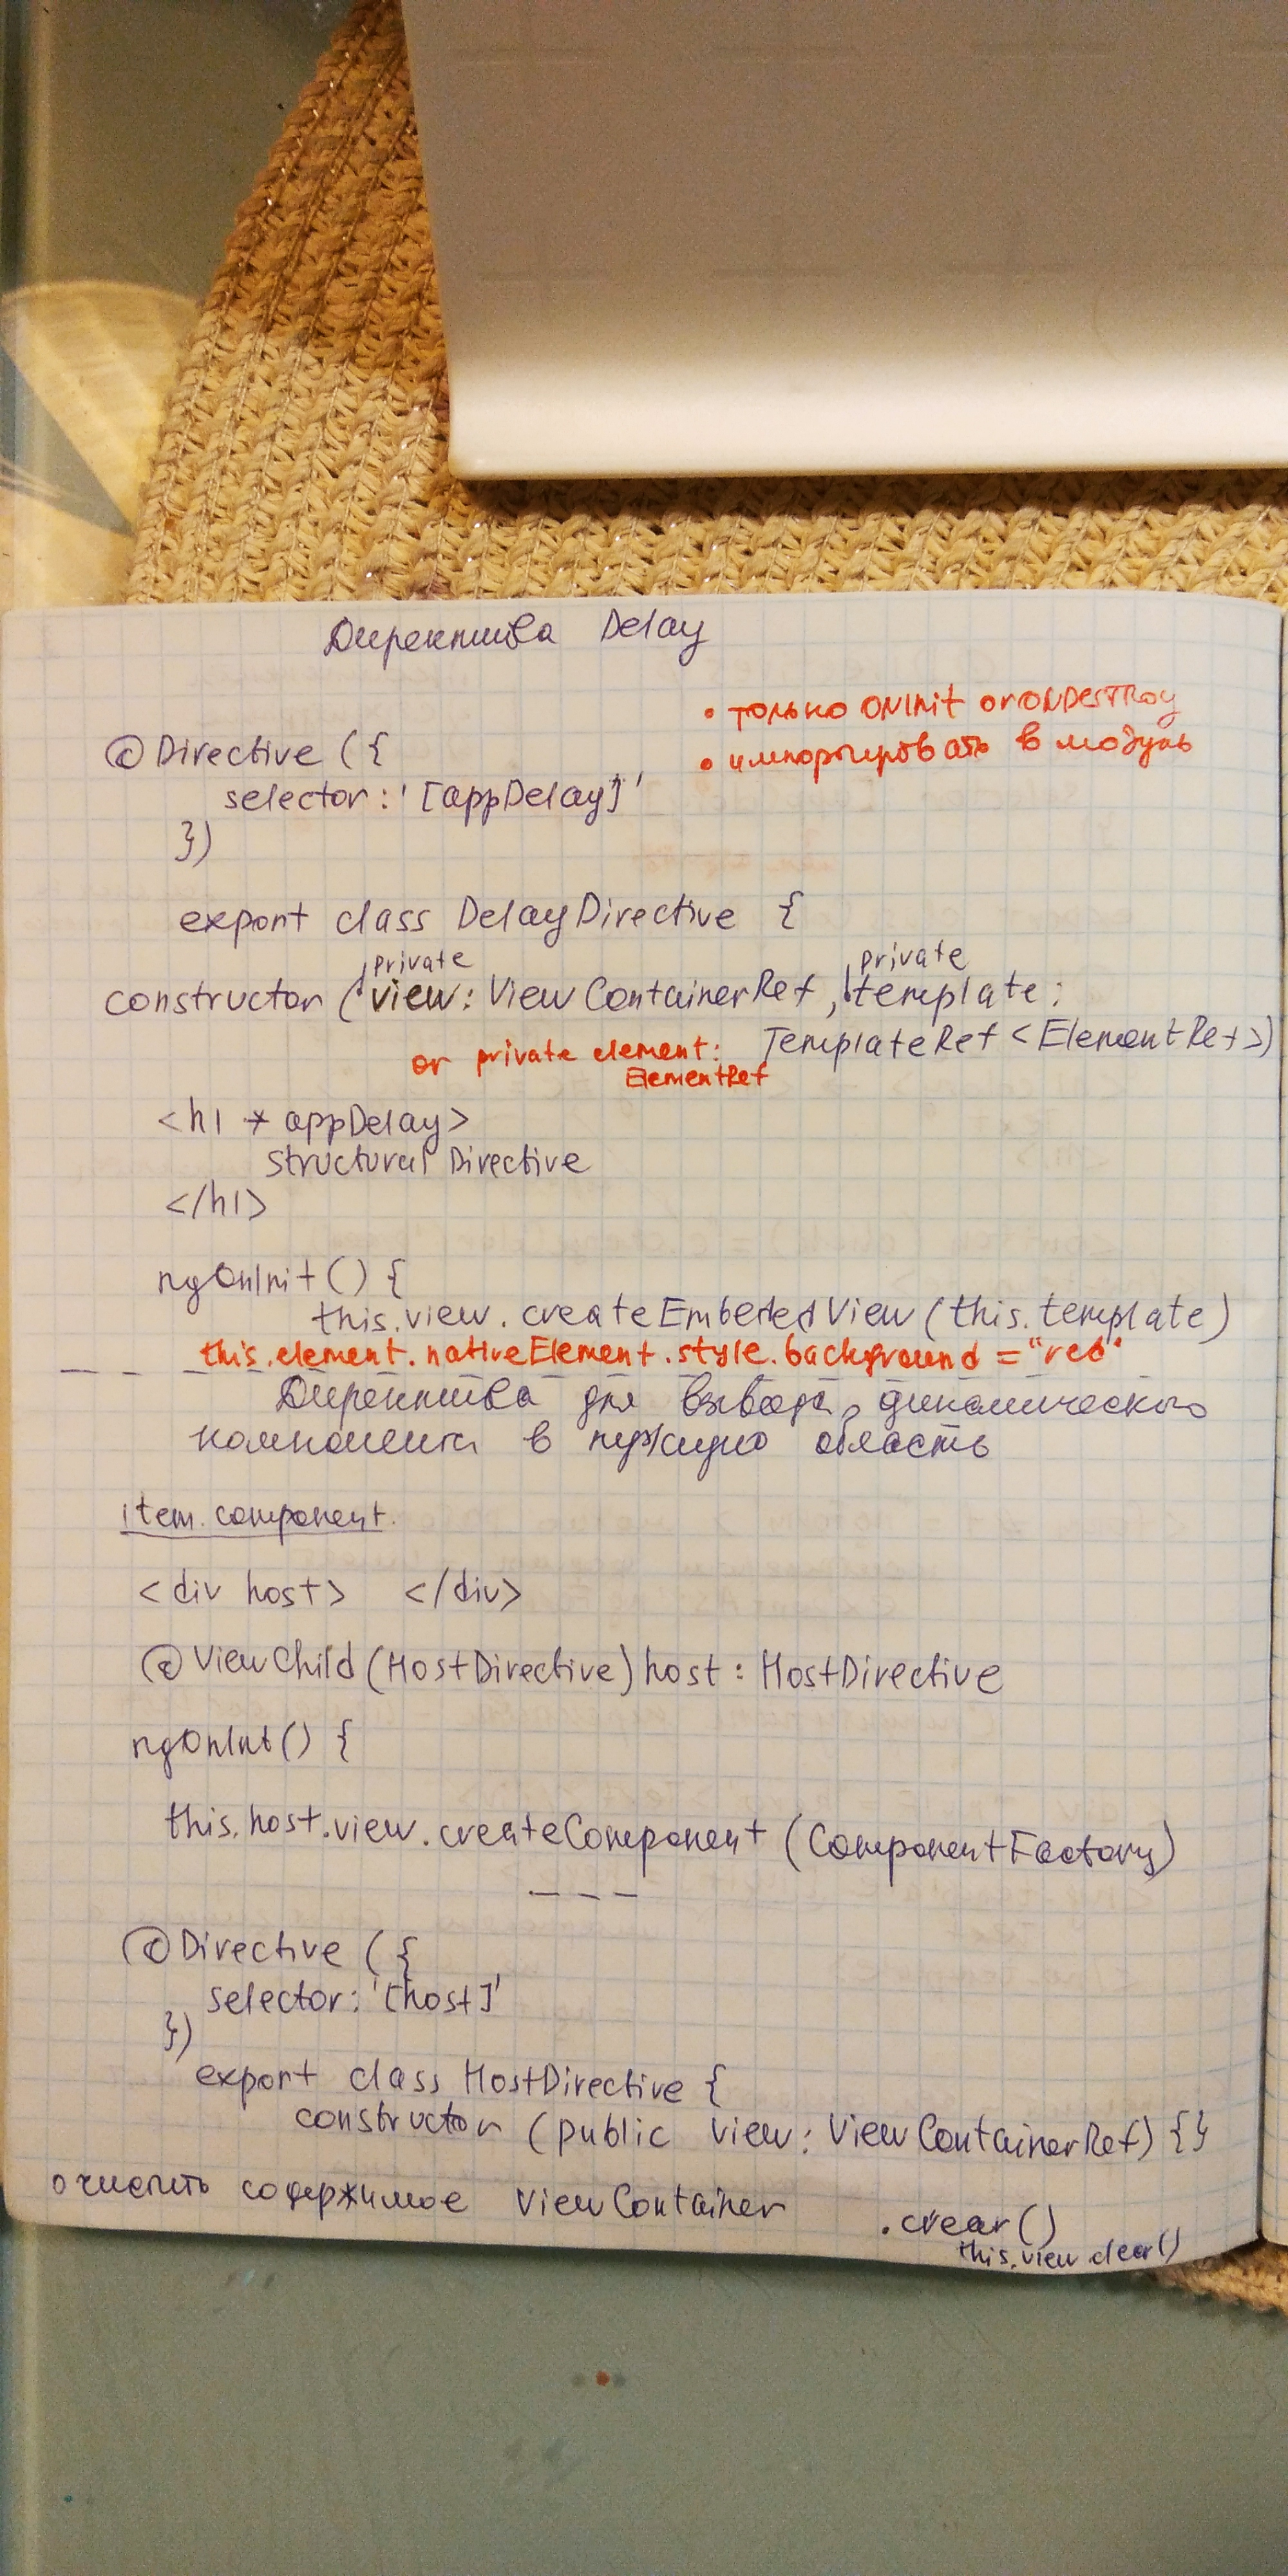 Директива Delay
• только ONInit or ONDestroy
• импортировать в модуль
@Directive ({
selector: '[appDelay]'
})
export class DelayDirective {
private private
constructor (view: ViewContainerRef, template:
TemplateRef <ElementRef>)
or private element:
ElementRef
<h1 *appDelay>
Structural Directive
</h1>
ngOnInit() {
this.view.createEmbededView(this.template)
this.element.nativeElement.style.background = "red"
Директива для вывода динамического
компонента в нужную область
item.component.
<div host> </div>
@ViewChild(HostDirective) host: HostDirective
ngOnInit() {
this.host.view.createComponent (ComponentFactory)
- - -
@Directive ({
selector: '[host]'
})
export class HostDirective {
constructor (public view: ViewContainerRef) {}
очистить содержимое ViewContainer
.clear()
this.view.clear()